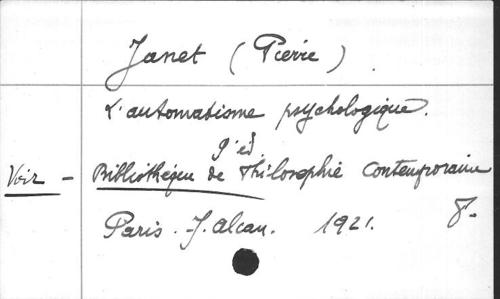 Janet (Pierre)
L'automatisme psychologique.
9e éd
Voir - Bibliothèque de Philosophie Contemporaine
Paris. F. Alcan. 1921. 8º